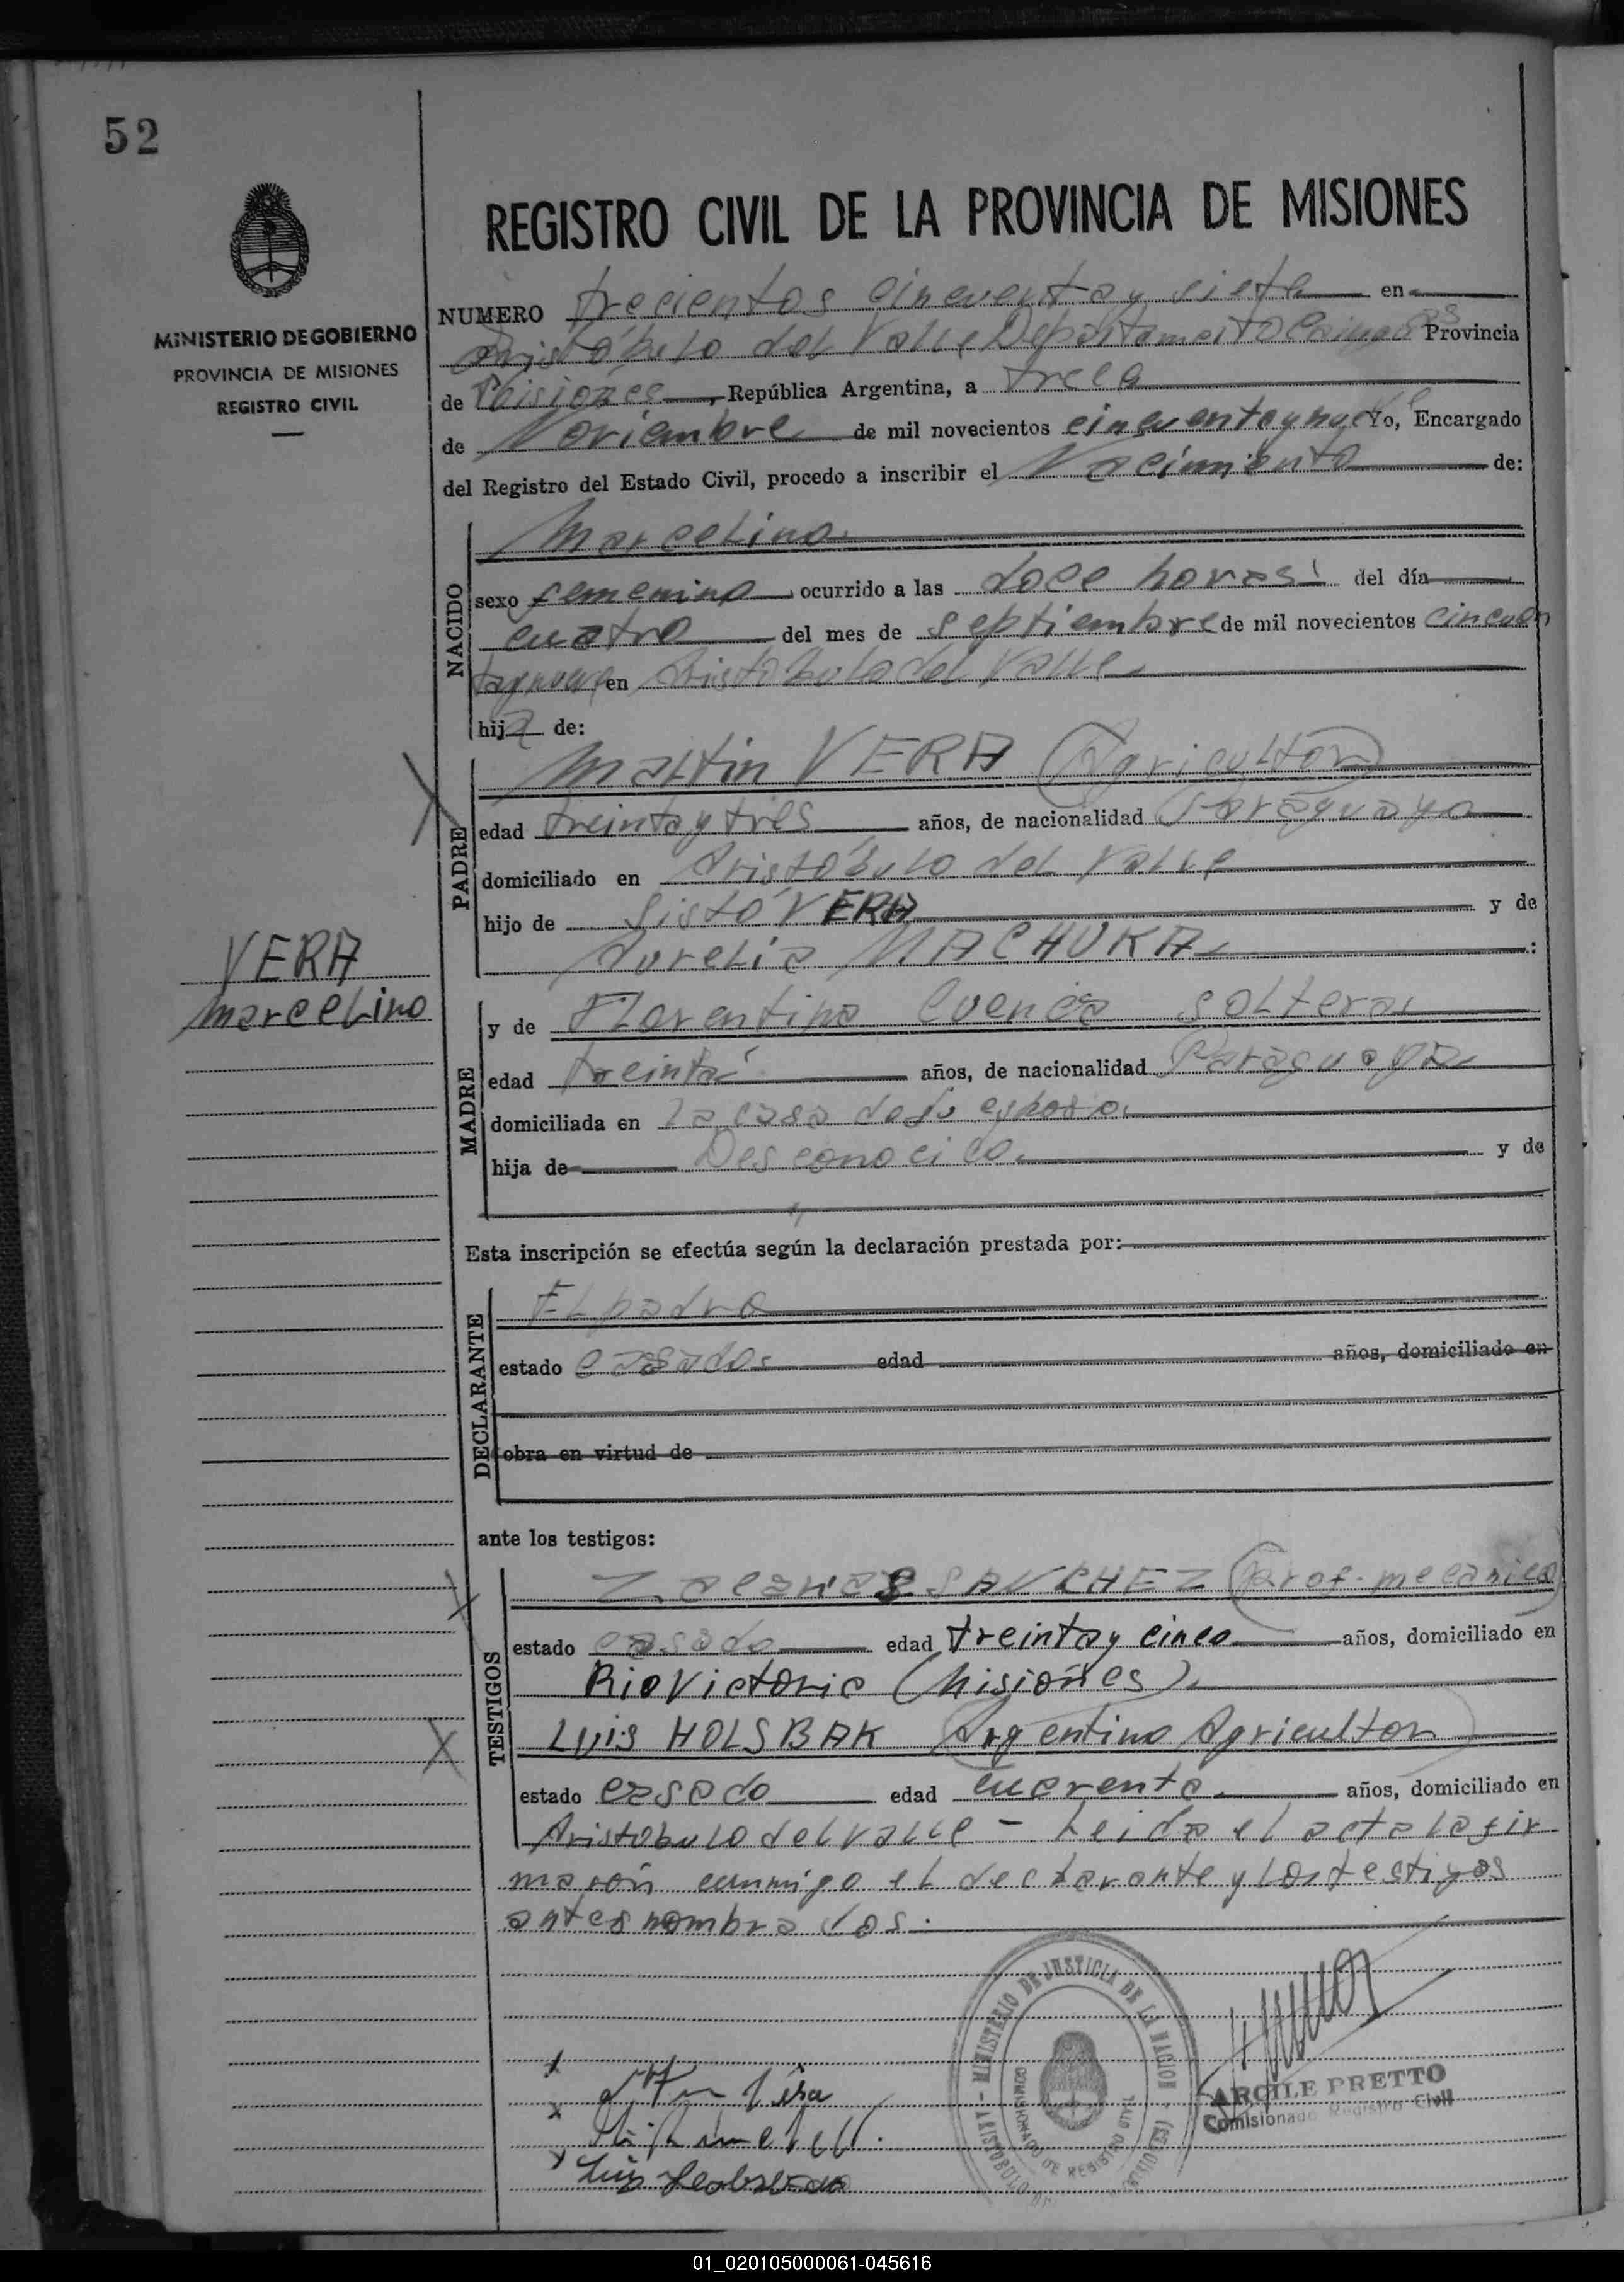 52
REGISTRO CIVIL DE LA PROVINCIA DE MISIONES
MINISTERIO DE GOBIERNO
PROVINCIA DE MISIONES
REGISTRO CIVIL
NUMERO trecientos cincuenta y siete en
Aristóbulo del Valle Departamento Cainguas Provincia
de Misiones, República Argentina, a trece
de Noviembre de mil novecientos cincuentaynueve Yo, Encargado
del Registro del Estado Civil, procedo a inscribir el Nacimiento de:
NACIDO
Marcelina
sexo femenino ocurrido a las doce horas del día
cuatro del mes de septiembre de mil novecientos cincuen
taynueve en Aristobulo del Valle
hija de:
PADRE
Martin VERA (Agricultor)
edad treinta y tres años, de nacionalidad Paraguaya
domiciliado en Aristóbulo del Valle
hijo de Sisto VERA y de
Aurelia MACHUKA
VERA
Marcelina
MADRE
y de Florentina Cuenca soltera
edad treinta años, de nacionalidad Paraguaya
domiciliada en la casa de su esposo
hija de Desconocido y de
Esta inscripción se efectúa según la declaración prestada por:
DECLARANTE
El padre
estado casado edad años, domiciliado en
obra en virtud de
ante los testigos:
TESTIGOS
SANCHEZ (prof. mecanico)
estado casado edad treinta y cinco años, domiciliado en
Rio Victoria (Misiones)
LUIS HOLSBAK Argentino Agricultor
estado casado edad cuarenta años, domiciliado en
Aristobulo del Valle - Leida el acta la fir
maron cunmigo el declarante y los testigos
antes nombrados.
MINISTERIO DE JUSTICIA DE LA NACION
COMISIONADO DE REGISTRO CIVIL
ARISTOBULO DEL (MISIONES)
ARGILE PRETTO
Comisionado Registro Civil
Vera
Luis
01_020105000061-045616